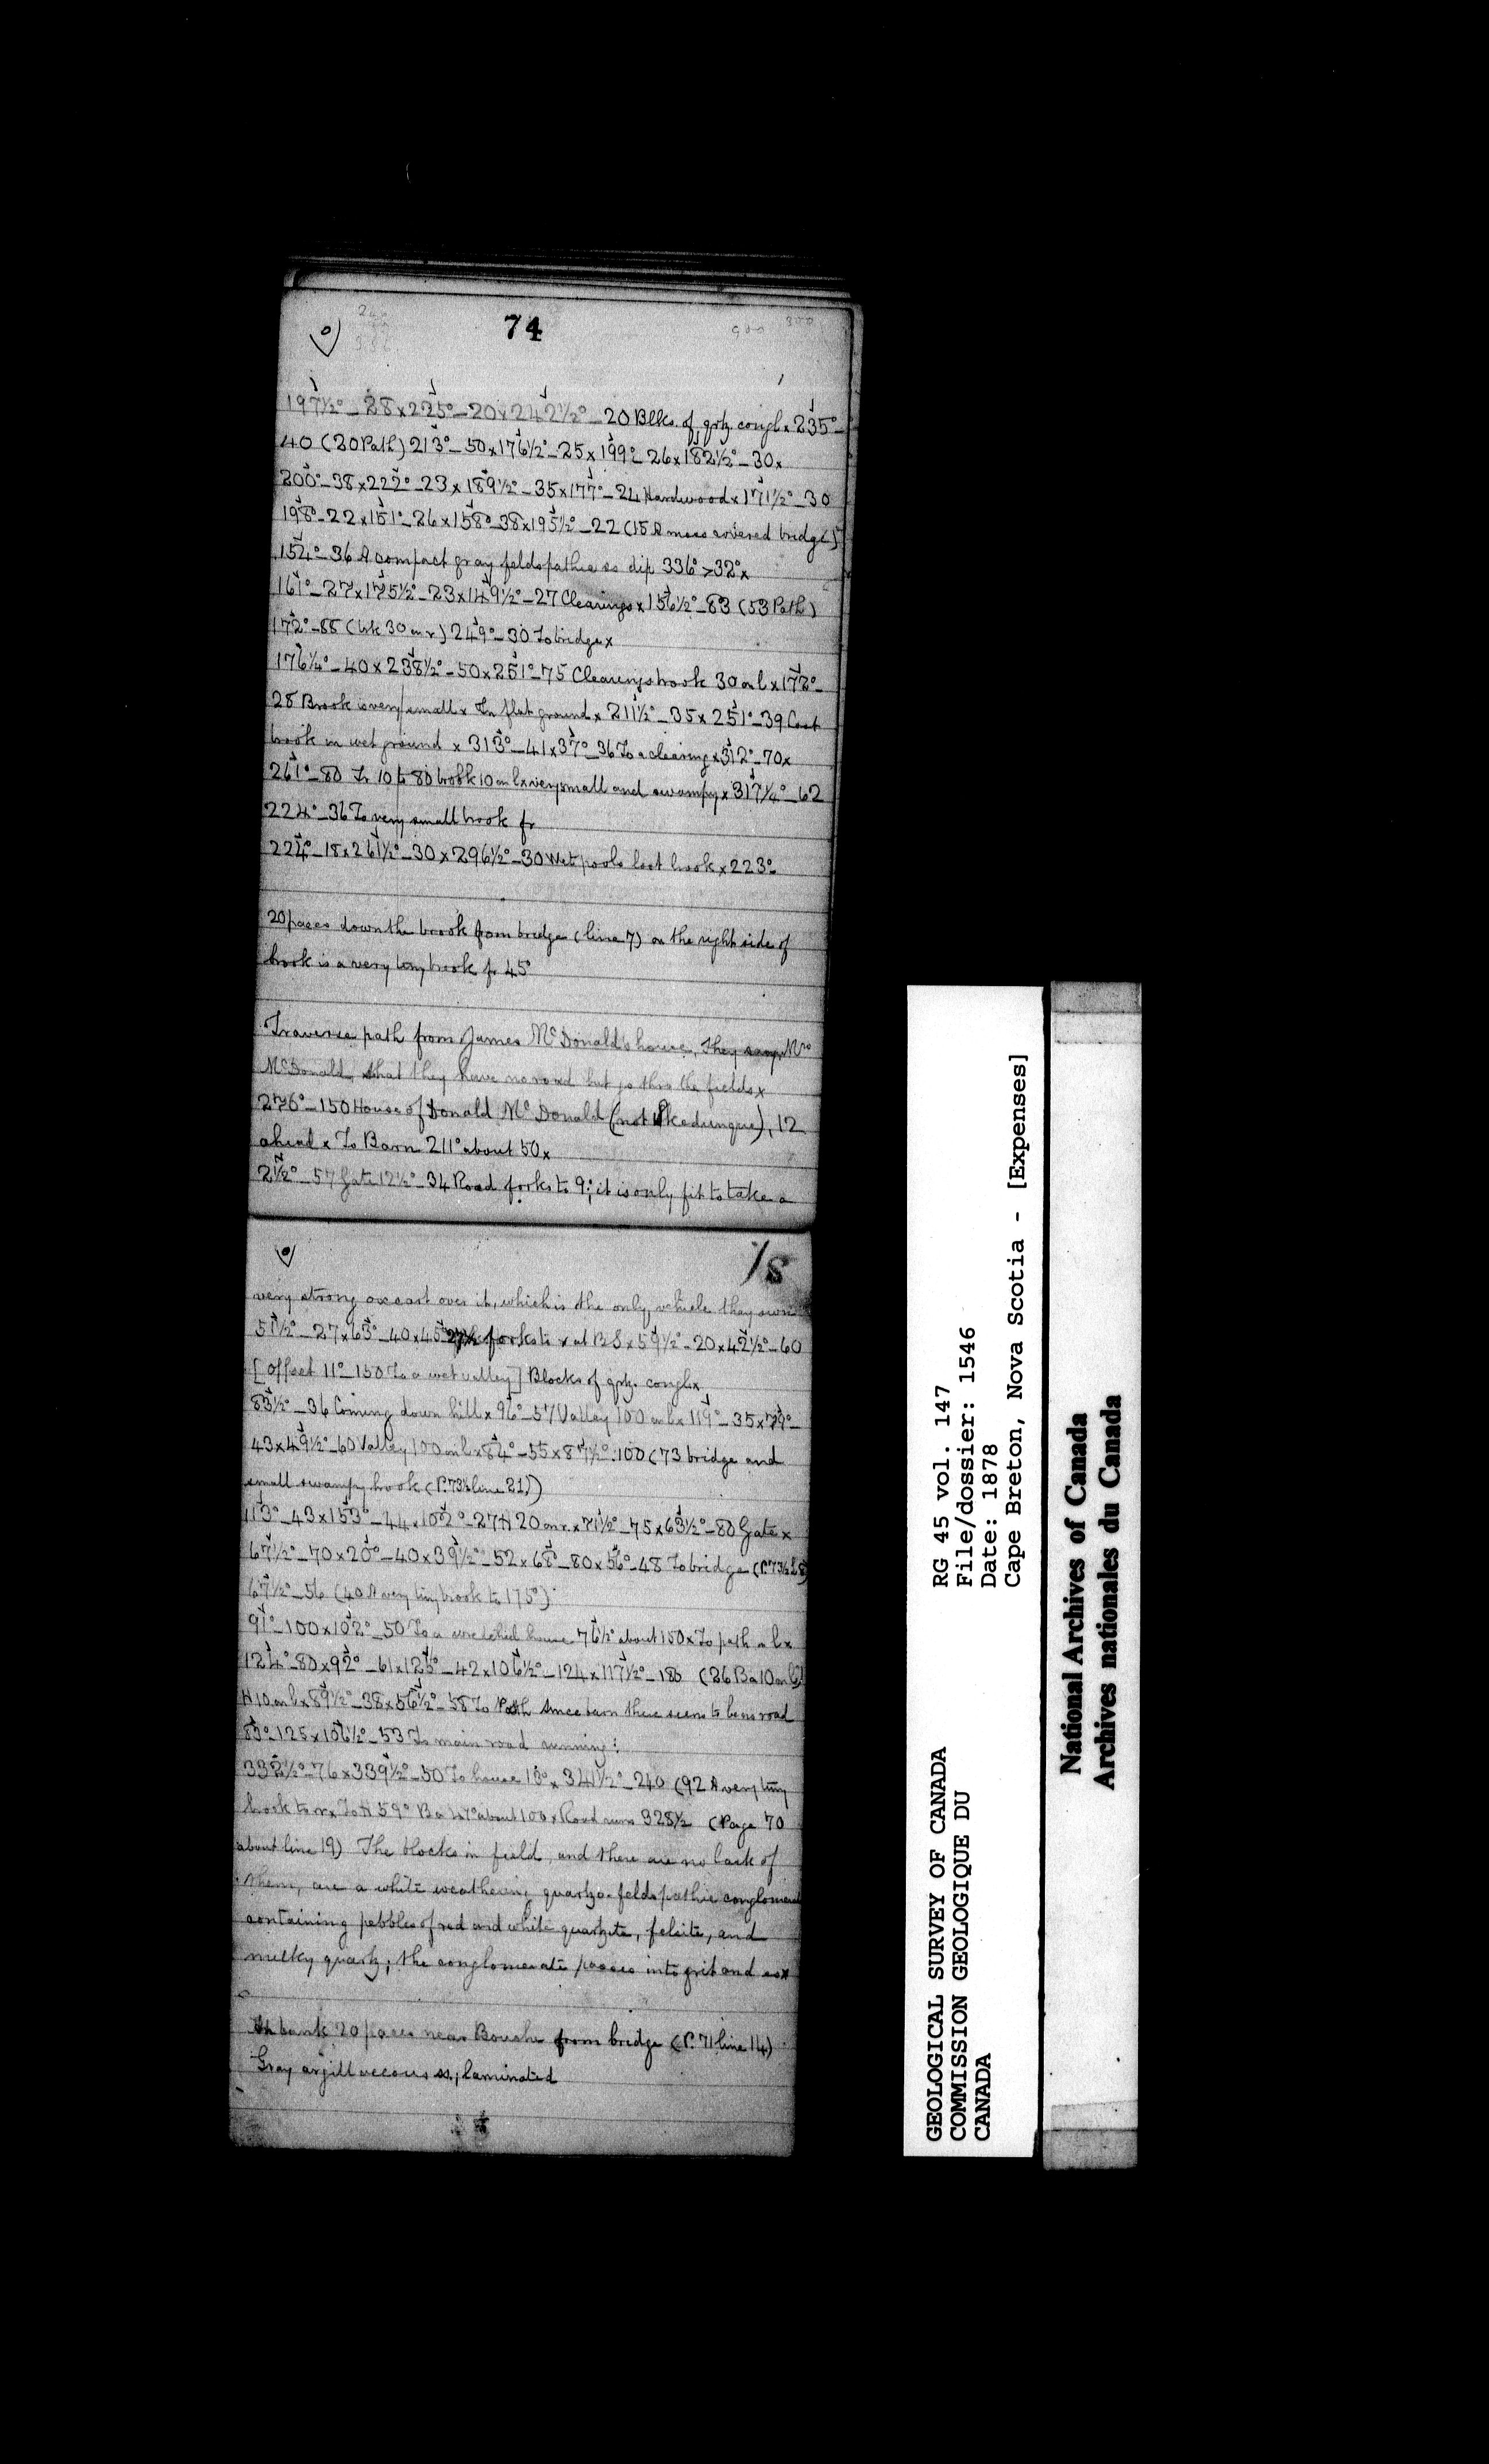 74
900 300
197½°_28x225°_20x242½°_20 Blks. of qrtz. congl. x 235°_
40 (20 Path) 213°_50x176½°_25x199°_26x182½°_30x
200°_38x222°_23x189½°_35x177°_24 Hardwood x 171½°_30
198°_22x151°_26x158°_38x195½°_22 (15 A moss covered bridge)
154°_36 A compact gray feldspathic ss dip 336° >32°x
161°_27x175½°_23x149½°_27 Clearings x 156½°_83 (53 Path)
172°_88 (brk 30 on r) 249°_30 To bridge x
176¼°_40x238½°_50x251°_75 Clearings brook 30 on l x 172°_
28 Brook is very small x In flat ground x 211½°_35x251°_39 Cost
brook in wet ground x 313°_41x37°_36 To a clearing x 312°_70x
261°_80 Fr 10 to 80 brook 10 on l x very small and swampy x 317¼°_62
224°_36 To very small brook fr
224°_18x261½°_30x296½°_30 Wet pools lost brook x 223°
20 paces down the brook from bridge (line 7) on the right side of
brook is a very tiny brook fr 45°
Traverse path from James McDonald's house, They say, Mrs
McDonald, that they have no road but go thro the fields x
276°_150 House of Donald McDonald (not Skedunque), 12
ahead x To Barn 211° about 50x
2½°_57 Gate 12½°_34 Road forks to 9°; it is only fit to take a
18
very strong oxcart over it, which is the only vehicle they own
51½°_27x63°_40x45° forks to x at BS x 59½°_20x42½°_60
[Offset 11°_150 To a wet valley] Blocks of qrtz. congl. x
83½°_36 Coming down hill x 96°_57 Valley 100 on l x 119°_35x79°_
43x49½°_60 Valley 100 on l x 84°_55x87½°_100 (73 bridge and
small swampy brook (P. 73½ line 21))
113°_43x153°_44x102°_27 H 20 on r. x 71½°_75x63½°_80 Gate x
67½°_70x20°_40x39½°_52x68°_80x56°_48 To bridge (P. 73½ L 8)
67½°_56 (40 A very tiny brook to 175°)
91°_100x102°_50 To a wretched house 76½° about 150 x To path on l x
124°_80x92°_61x125°_42x106½°_124x117½°_180 (26 Ba 10 on l)
H 10 on l x 89½°_38x56½°_58 To Path Since barn there seems to be no road
83°_125x106½°_53 To main road running:
332½°_76x339½°_50 To house 18° x 341½°_240 (92 A very tiny
brook to r x To H 59° Ba 47° about 100 x Road runs 328½ (Page 70
about line 19) The blocks in field, and there are no lack of
them, are a white weathering quartzo-feldspathic conglomerate
containing pebbles of red and white quartzite, felsite, and
milky quartz; the conglomerate passes into grit and ss x
In bank 20 paces near Bourke from bridge (P. 71 line 14)
Gray argillaceous ss, laminated
RG 45 vol. 147
File/dossier: 1546
Date: 1878
Cape Breton, Nova Scotia - [Expenses]
GEOLOGICAL SURVEY OF CANADA
COMMISSION GEOLOGIQUE DU
CANADA
National Archives of Canada
Archives nationales du Canada